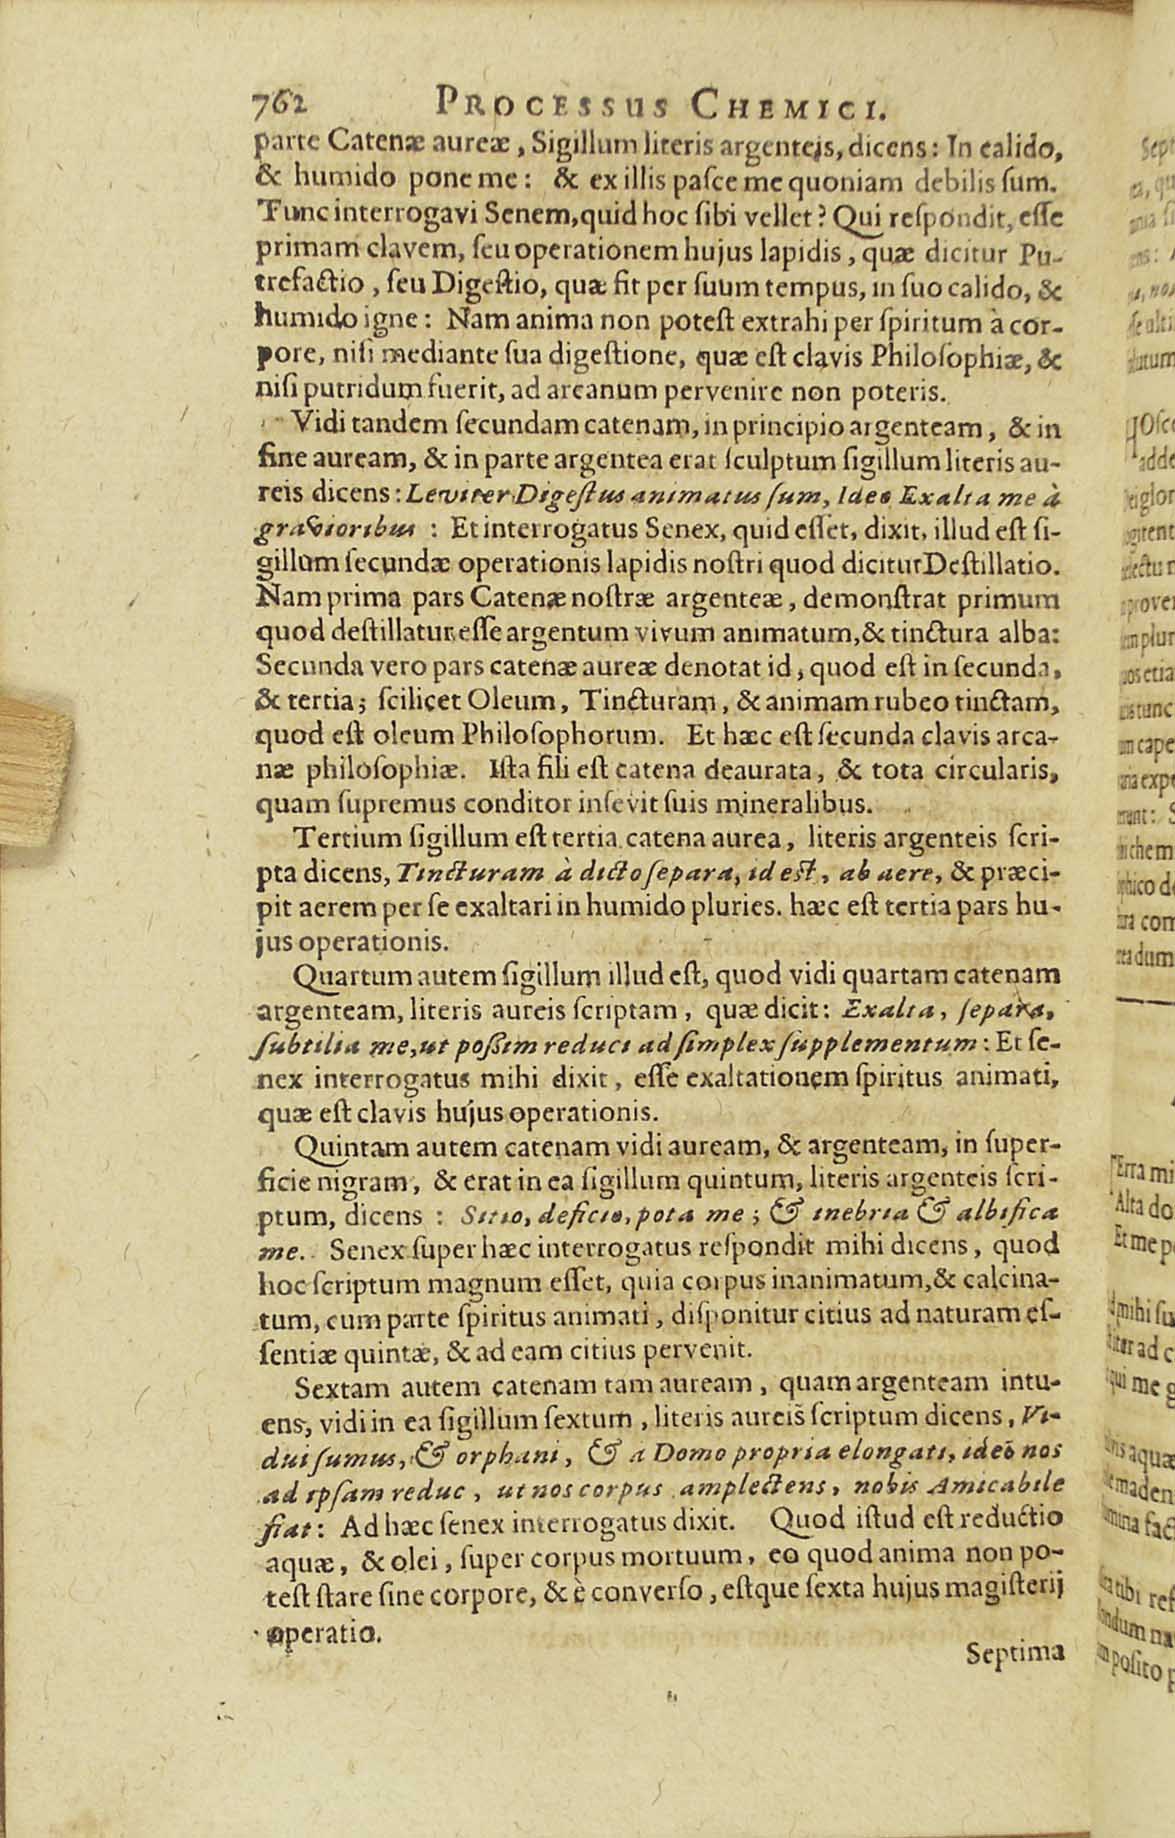 762 PROCESSUS CHEMICI.
parte Catenæ aureæ, Sigillum literis argenteis, dicens: In calido,
& humido pone me: & ex illis paſce me quoniam debilis ſum.
Tunc interrogavi Senem, quid hoc ſibi vellet? Qui reſpondit, eſſe
primam clavem, ſeu operationem hujus lapidis, quæ dicitur Pu-
trefactio, ſeu Digeſtio, quæ fit per ſuum tempus, in ſuo calido, &
humido igne: Nam anima non poteſt extrahi per ſpiritum à cor-
pore, niſi mediante ſua digeſtione, quæ eſt clavis Philoſophiæ, &
niſi putridum fuerit, ad arcanum pervenire non poteris.
Vidi tandem ſecundam catenam, in principio argenteam, & in
fine auream, & in parte argentea erat ſculptum ſigillum literis au-
reis dicens: Leviter Digeſtus animatus ſum, Ideo Exalta me à
gravioribus: Et interrogatus Senex, quid eſſet, dixit, illud eſt ſi-
gillum ſecundæ operationis lapidis noſtri quod dicitur Deſtillatio.
Nam prima pars Catenæ noſtræ argenteæ, demonſtrat primum
quod deſtillatur, eſſe argentum vivum animatum, & tinctura alba:
Secunda vero pars catenæ aureæ denotat id, quod eſt in ſecunda,
& tertia; ſcilicet Oleum, Tincturam, & animam rubeo tinctam,
quod eſt oleum Philoſophorum. Et hæc eſt ſecunda clavis arca-
næ philoſophiæ. Iſta fili eſt catena deaurata, & tota circularis,
quam ſupremus conditor inſevit ſuis mineralibus.
Tertium ſigillum eſt tertia catena aurea, literis argenteis ſcri-
pta dicens, Tincturam à dicto ſepara, id eſt, ab aere, & præci-
pit aerem per ſe exaltari in humido pluries. hæc eſt tertia pars hu-
jus operationis.
Quartum autem ſigillum illud eſt, quod vidi quartam catenam
argenteam, literis aureis ſcriptam, quæ dicit: Exalta, ſepara,
ſubtilia me, ut poſſim reduci ad ſimplex ſupplementum: Et ſe-
nex interrogatus mihi dixit, eſſe exaltationem ſpiritus animati,
quæ eſt clavis hujus operationis.
Quintam autem catenam vidi auream, & argenteam, in ſuper-
ficie nigram, & erat in ea ſigillum quintum, literis argenteis ſcri-
ptum, dicens: Sitio, deficio, pota me; & inebria & albifica
me. Senex ſuper hæc interrogatus reſpondit mihi dicens, quod
hoc ſcriptum magnum eſſet, quia corpus inanimatum, & calcina-
tum, cum parte ſpiritus animati, diſponitur citius ad naturam eſ-
ſentiæ quintæ, & ad eam citius pervenit.
Sextam autem catenam tam auream, quam argenteam intu-
ens, vidi in ea ſigillum ſextum, literis aureis ſcriptum dicens, Vi-
dui ſumus, & orphani, & a Domo propria elongati, ideò nos
ad ipſam reduc, ut nos corpus amplectens, nobis Amicabile
fiat: Ad hæc ſenex interrogatus dixit. Quod iſtud eſt reductio
aquæ, & olei, ſuper corpus mortuum, eo quod anima non po-
teſt ſtare ſine corpore, & è converſo, eſtque ſexta hujus magiſterij
operatio.
Septima